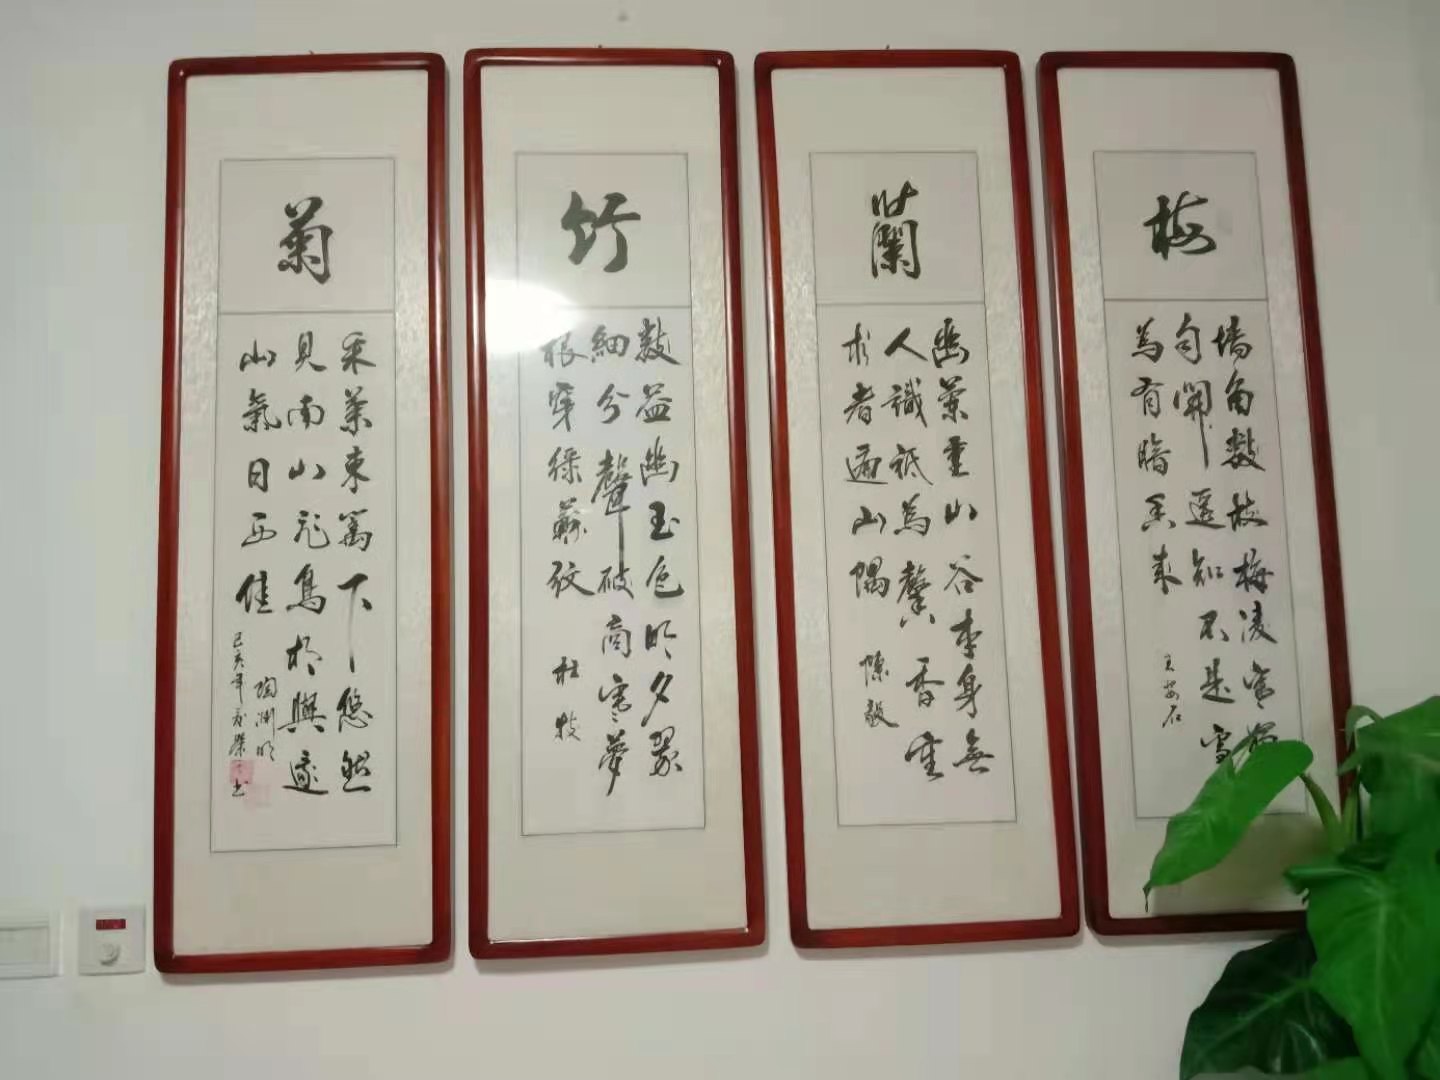 梅
墙角数枝梅凌寒獨
自開遥知不是雪
為有暗香来
王安石
蘭
幽蘭在山谷本自無
人識祇為馨香重
求者遍山隅
陳毅
竹
數茎幽玉色晓夕翠
烟分聲破窗寒夢
根穿绿蘚紋
杜牧
菊
采菊東篱下悠然
見南山飛鳥相與還
山氣日夕佳
陶渊明
己亥年